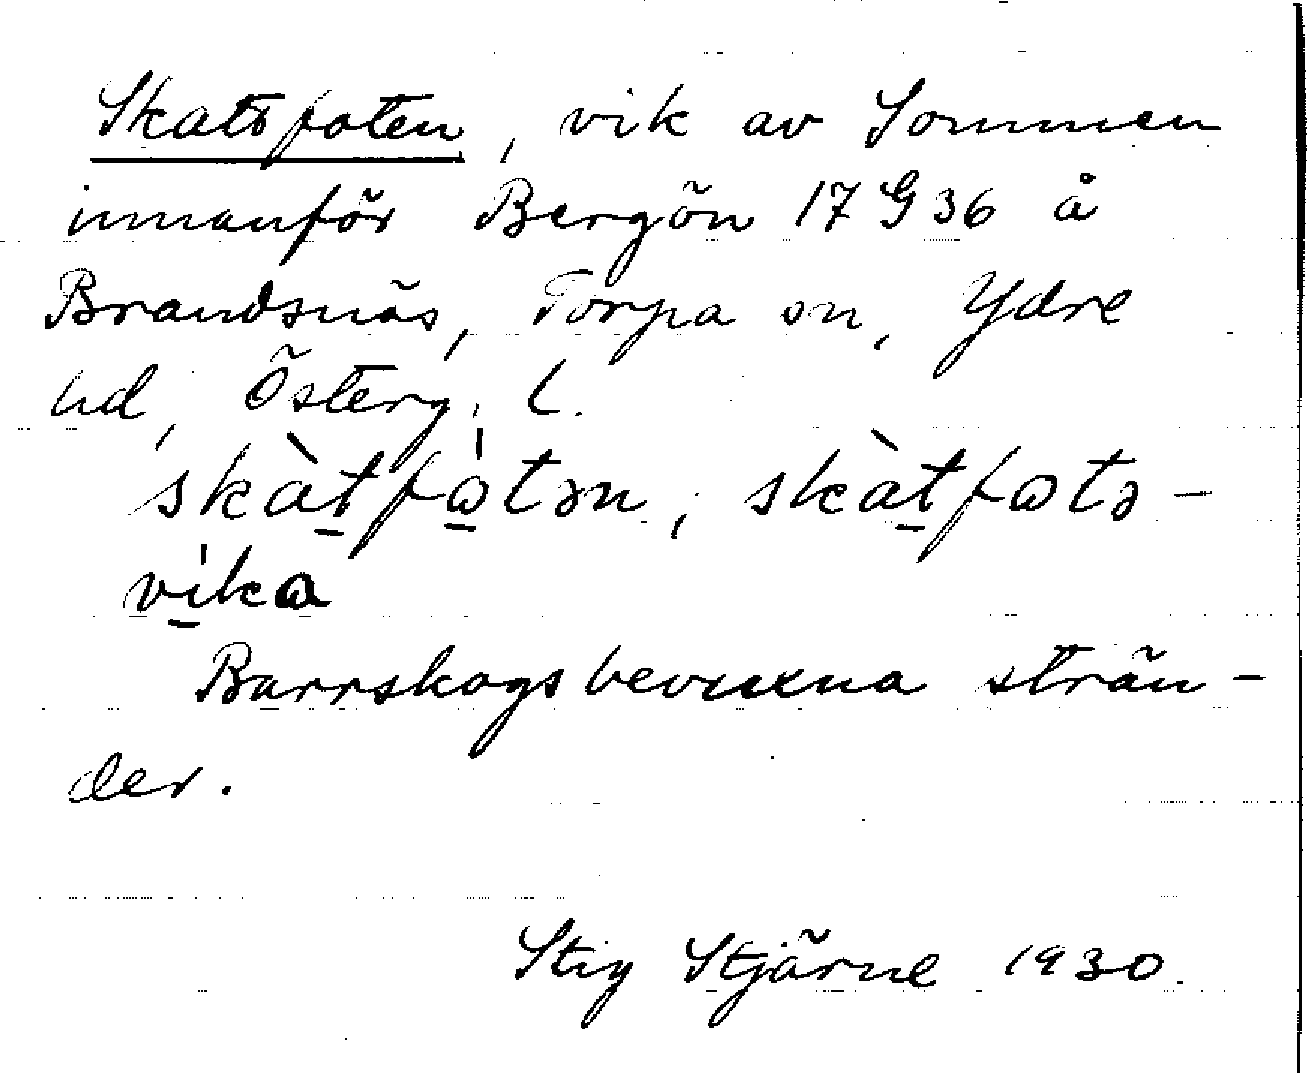 Skatsfoten, vik av Sommen
innanför Bergön 17 G 36 å
Brandsnäs, Torpa sn, Ydre
hd, Österg. l.
skàt̠fɷ̠̀tən, skàt̠fɷtə-
vi̠ka
Barrskogsbevuxna strän-
der.
Stig Stjärne 1930.